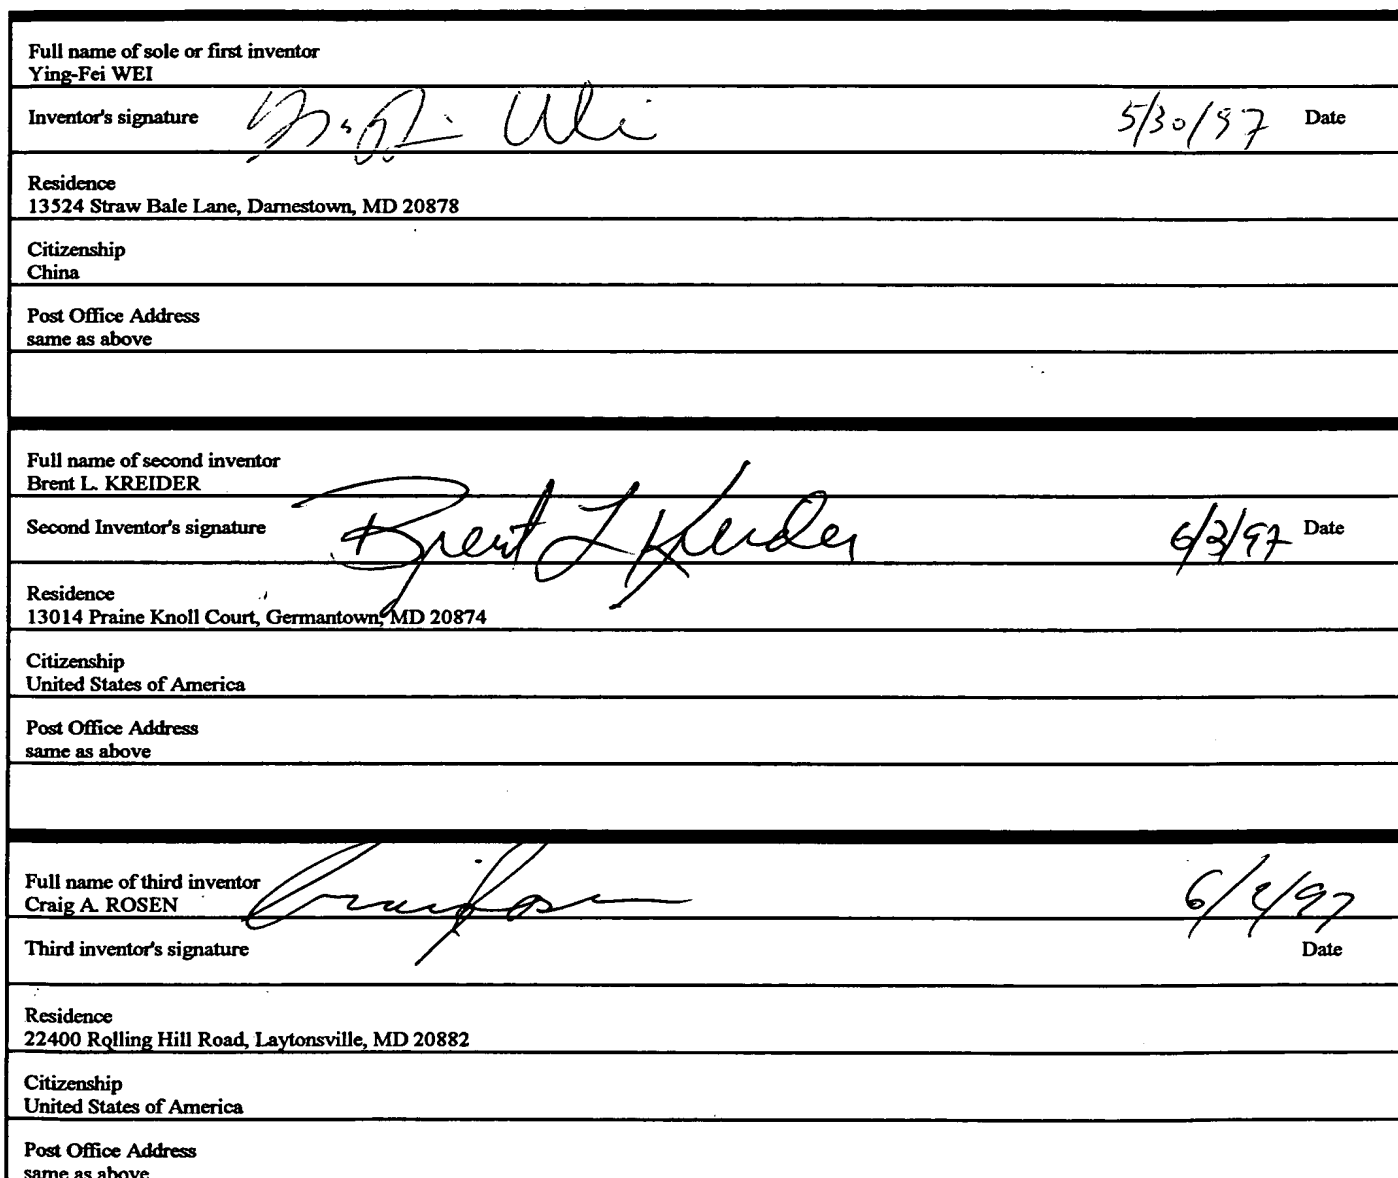 Full name of sole or first inventor
Ying-Fei WEI
Inventor's signature Wei 5/30/97 Date
Residence
13524 Straw Bale Lane, Darnestown, MD 20878
Citizenship
China
Post Office Address
same as above
Full name of second inventor
Brent L. KREIDER
Second Inventor's signature Brent L Kreider 6/3/97 Date
Residence
13014 Praine Knoll Court, Germantown, MD 20874
Citizenship
United States of America
Post Office Address
same as above
Full name of third inventor
Craig A. ROSEN
Craig Rosen 6/2/97
Third inventor's signature Date
Residence
22400 Rolling Hill Road, Laytonsville, MD 20882
Citizenship
United States of America
Post Office Address
same as above